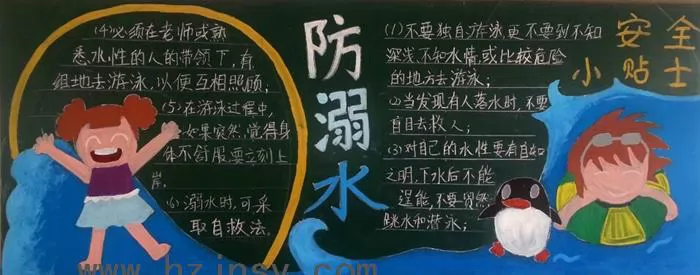 防溺水
安全
小贴士
(1)不要独自游泳更不要到不知
深浅,不知水情,或比较危险
的地方去游泳;
(2)当发现有人落水时,不要
盲目去救人;
(3)对自己的水性要有自知
之明,下水后不能
逞能,不要贸然
跳水和潜泳;
(4)必须在老师或熟
悉水性的人的带领下,有
组地去游泳,以便互相照顾;
(5)在游泳过程中,
如果突然,觉得身
体不舒服要立刻上
岸。
(6)溺水时,可采
取自救法。
www.hzjnsy.com